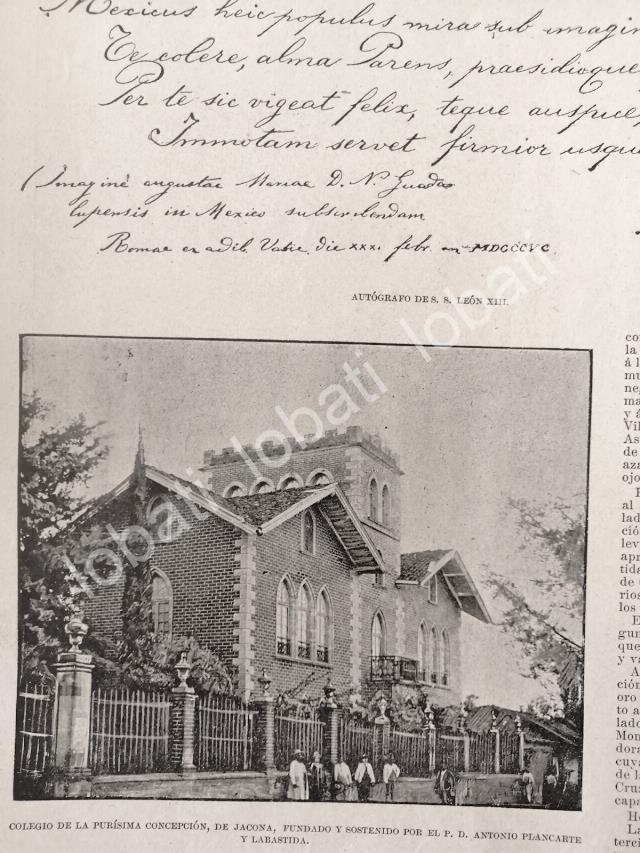 Mexicus heic populus mira sub imagin
Te colere, alma Parens, praesidioque
Per te sic vigeat felix, teque auspice,
Immotam servet firmior usqu
(Imagine augustae Mariae D. N. Guada
lupensis in Mexico subscribendam
Romae ex aedib. Vatic. die xxx. febr. an MDCCCVC.
AUTÓGRAFO DE S. S. LEÓN XIII.
lobati lobati lobati lobati lobati
COLEGIO DE LA PURÍSIMA CONCEPCIÓN, DE JACONA, FUNDADO Y SOSTENIDO POR EL P. D. ANTONIO PLANCARTE
Y LABASTIDA.
co
la
á l
mu
ne,
ma
y á
Vil
As
de
aza
ojo
al
lad
ció
lev
apr
tida
de
rios
los
E
gun
que
y va
A
ción
oro
to a
lado
Mon
dora
cuya
Crus
capa
He
La
terci